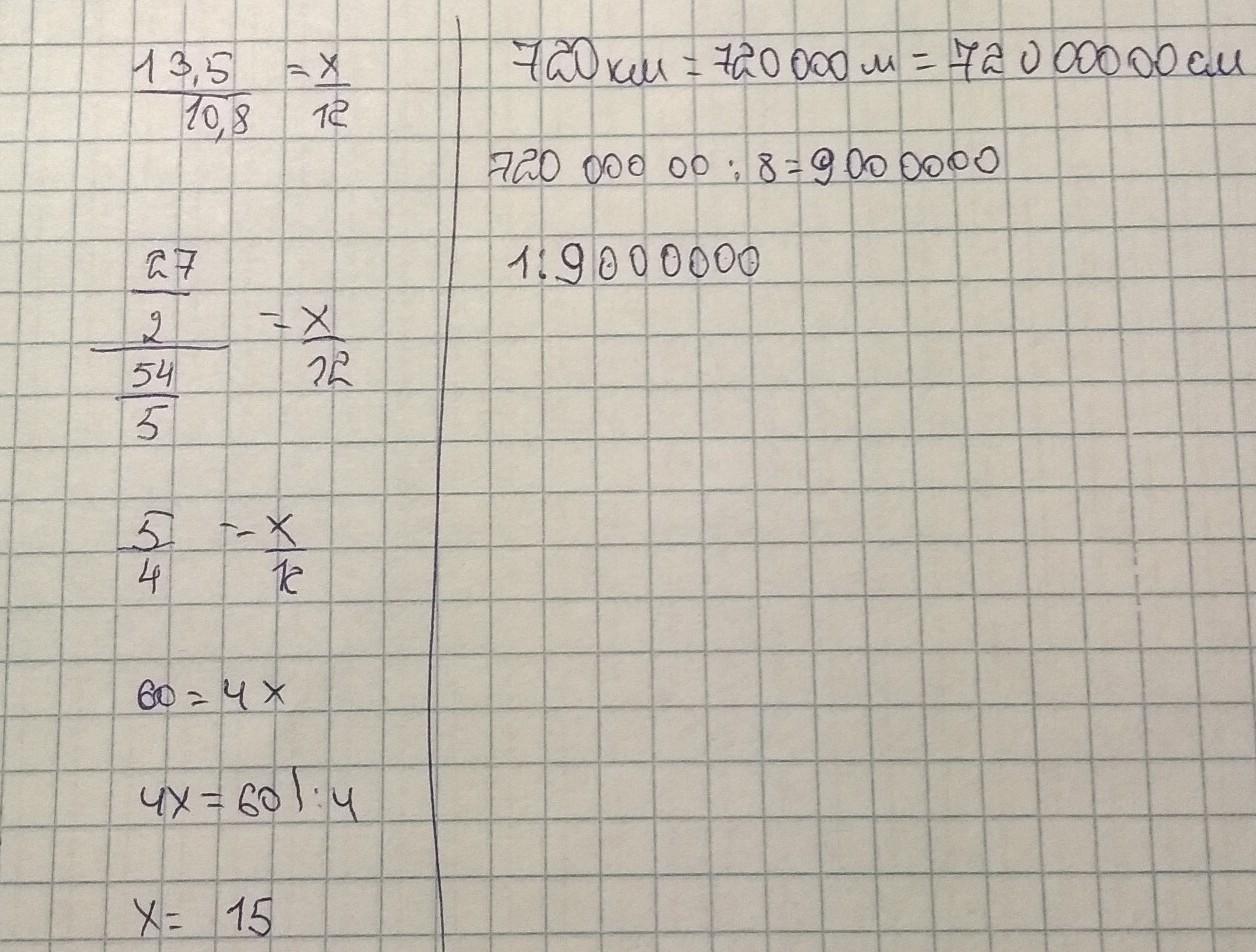 13,5/10,8 = x/12
27/2 / 54/5 = x/12
5/4 = x/12
60 = 4x
4x = 60 | : 4
x = 15
720 км = 720 000 м = 72 0 00000 см
720 000 00 : 8 = 900 0000
1 : 9000000